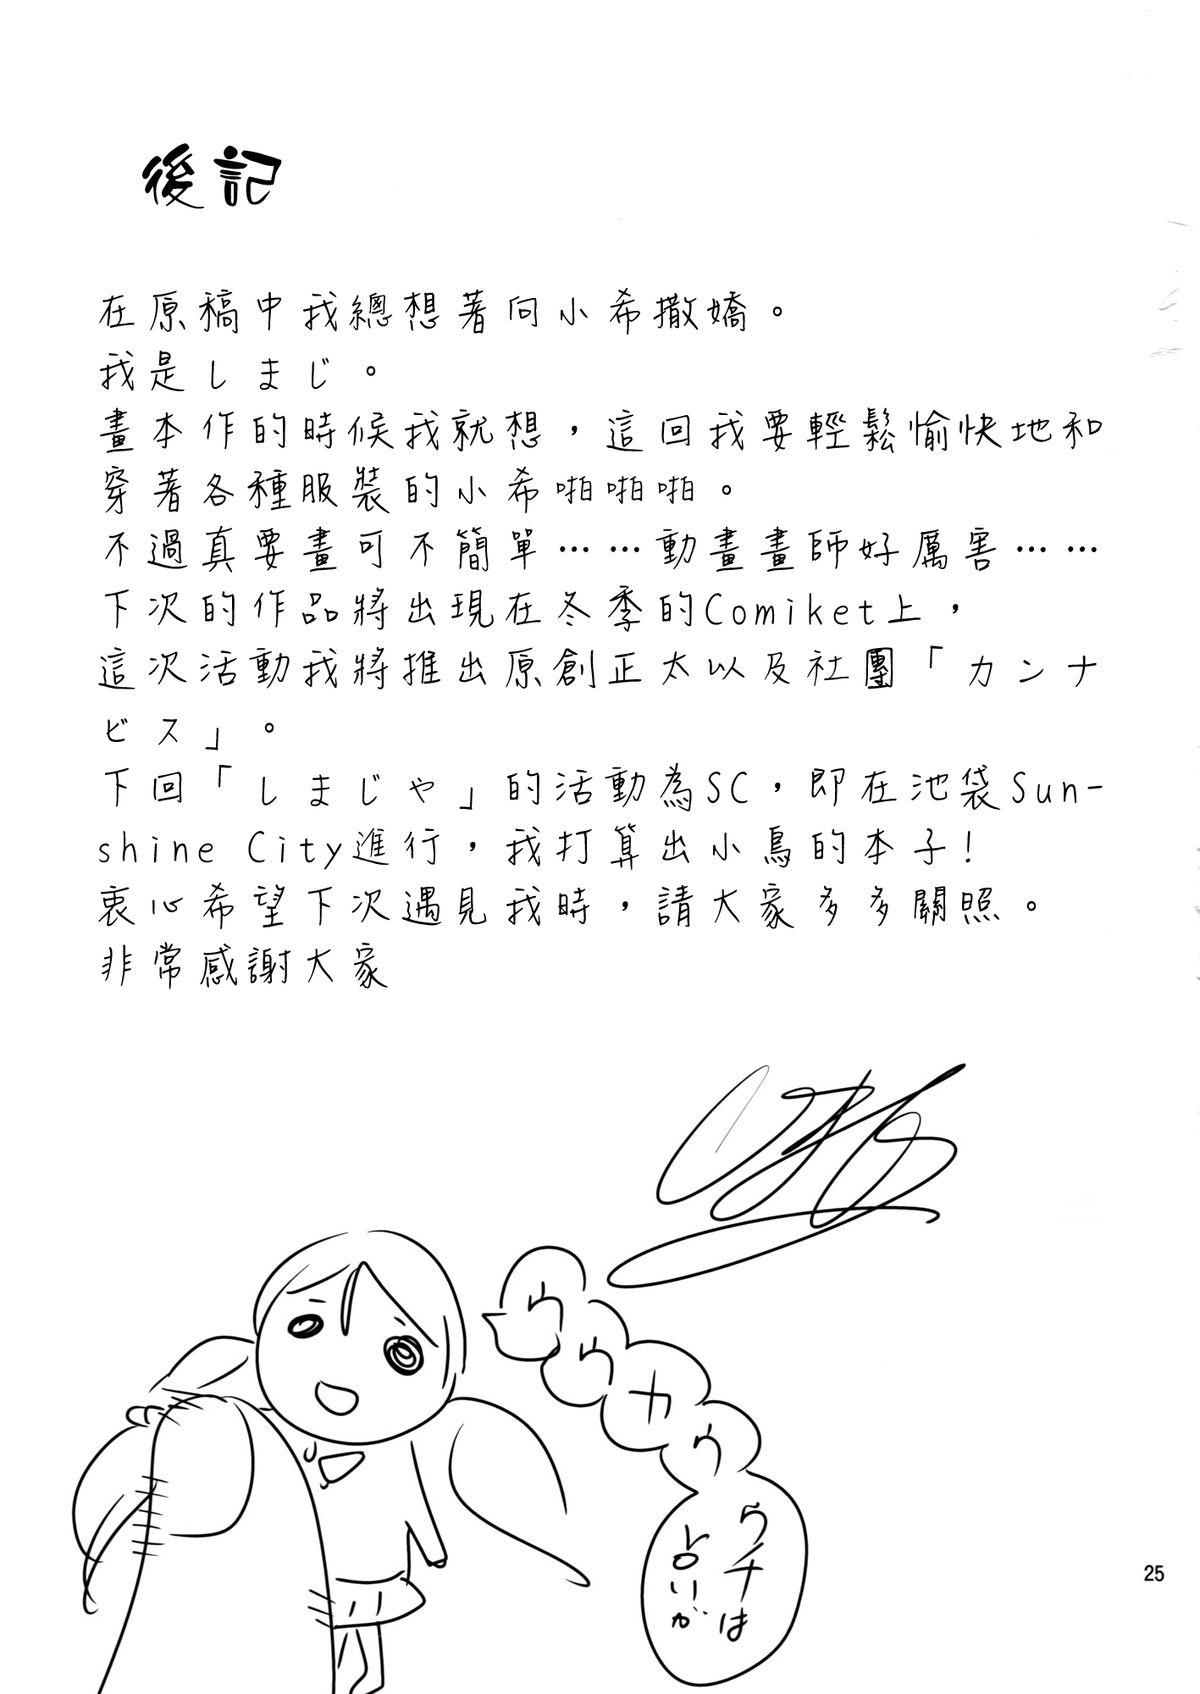 後記
在原稿中我總想著向小希撒嬌。
我是しまじ。
畫本作的時候我就想，這回我要輕鬆愉快地和
穿著各種服裝的小希啪啪啪。
不過真要畫可不簡單……動畫畫師好厲害……
下次的作品將出現在冬季的Comiket上，
這次活動我將推出原創正太以及社團「カンナ
ビス」。
下回「しまじや」的活動為SC，即在池袋Sun-
shine City進行，我打算出小鳥的本子!
衷心希望下次遇見我時，請大家多多關照。
非常感謝大家
ウ
ウ
カ
ウ
ウチは
占いが
25